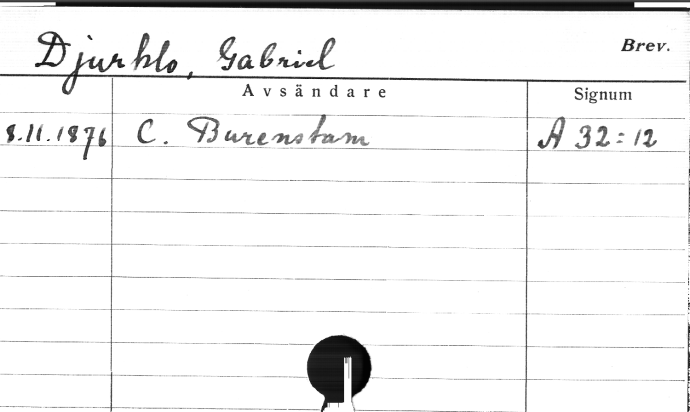 Djurklo, Gabriel
Brev.
Avsändare Signum
8.11.1876 C. Burenstam A 32:12